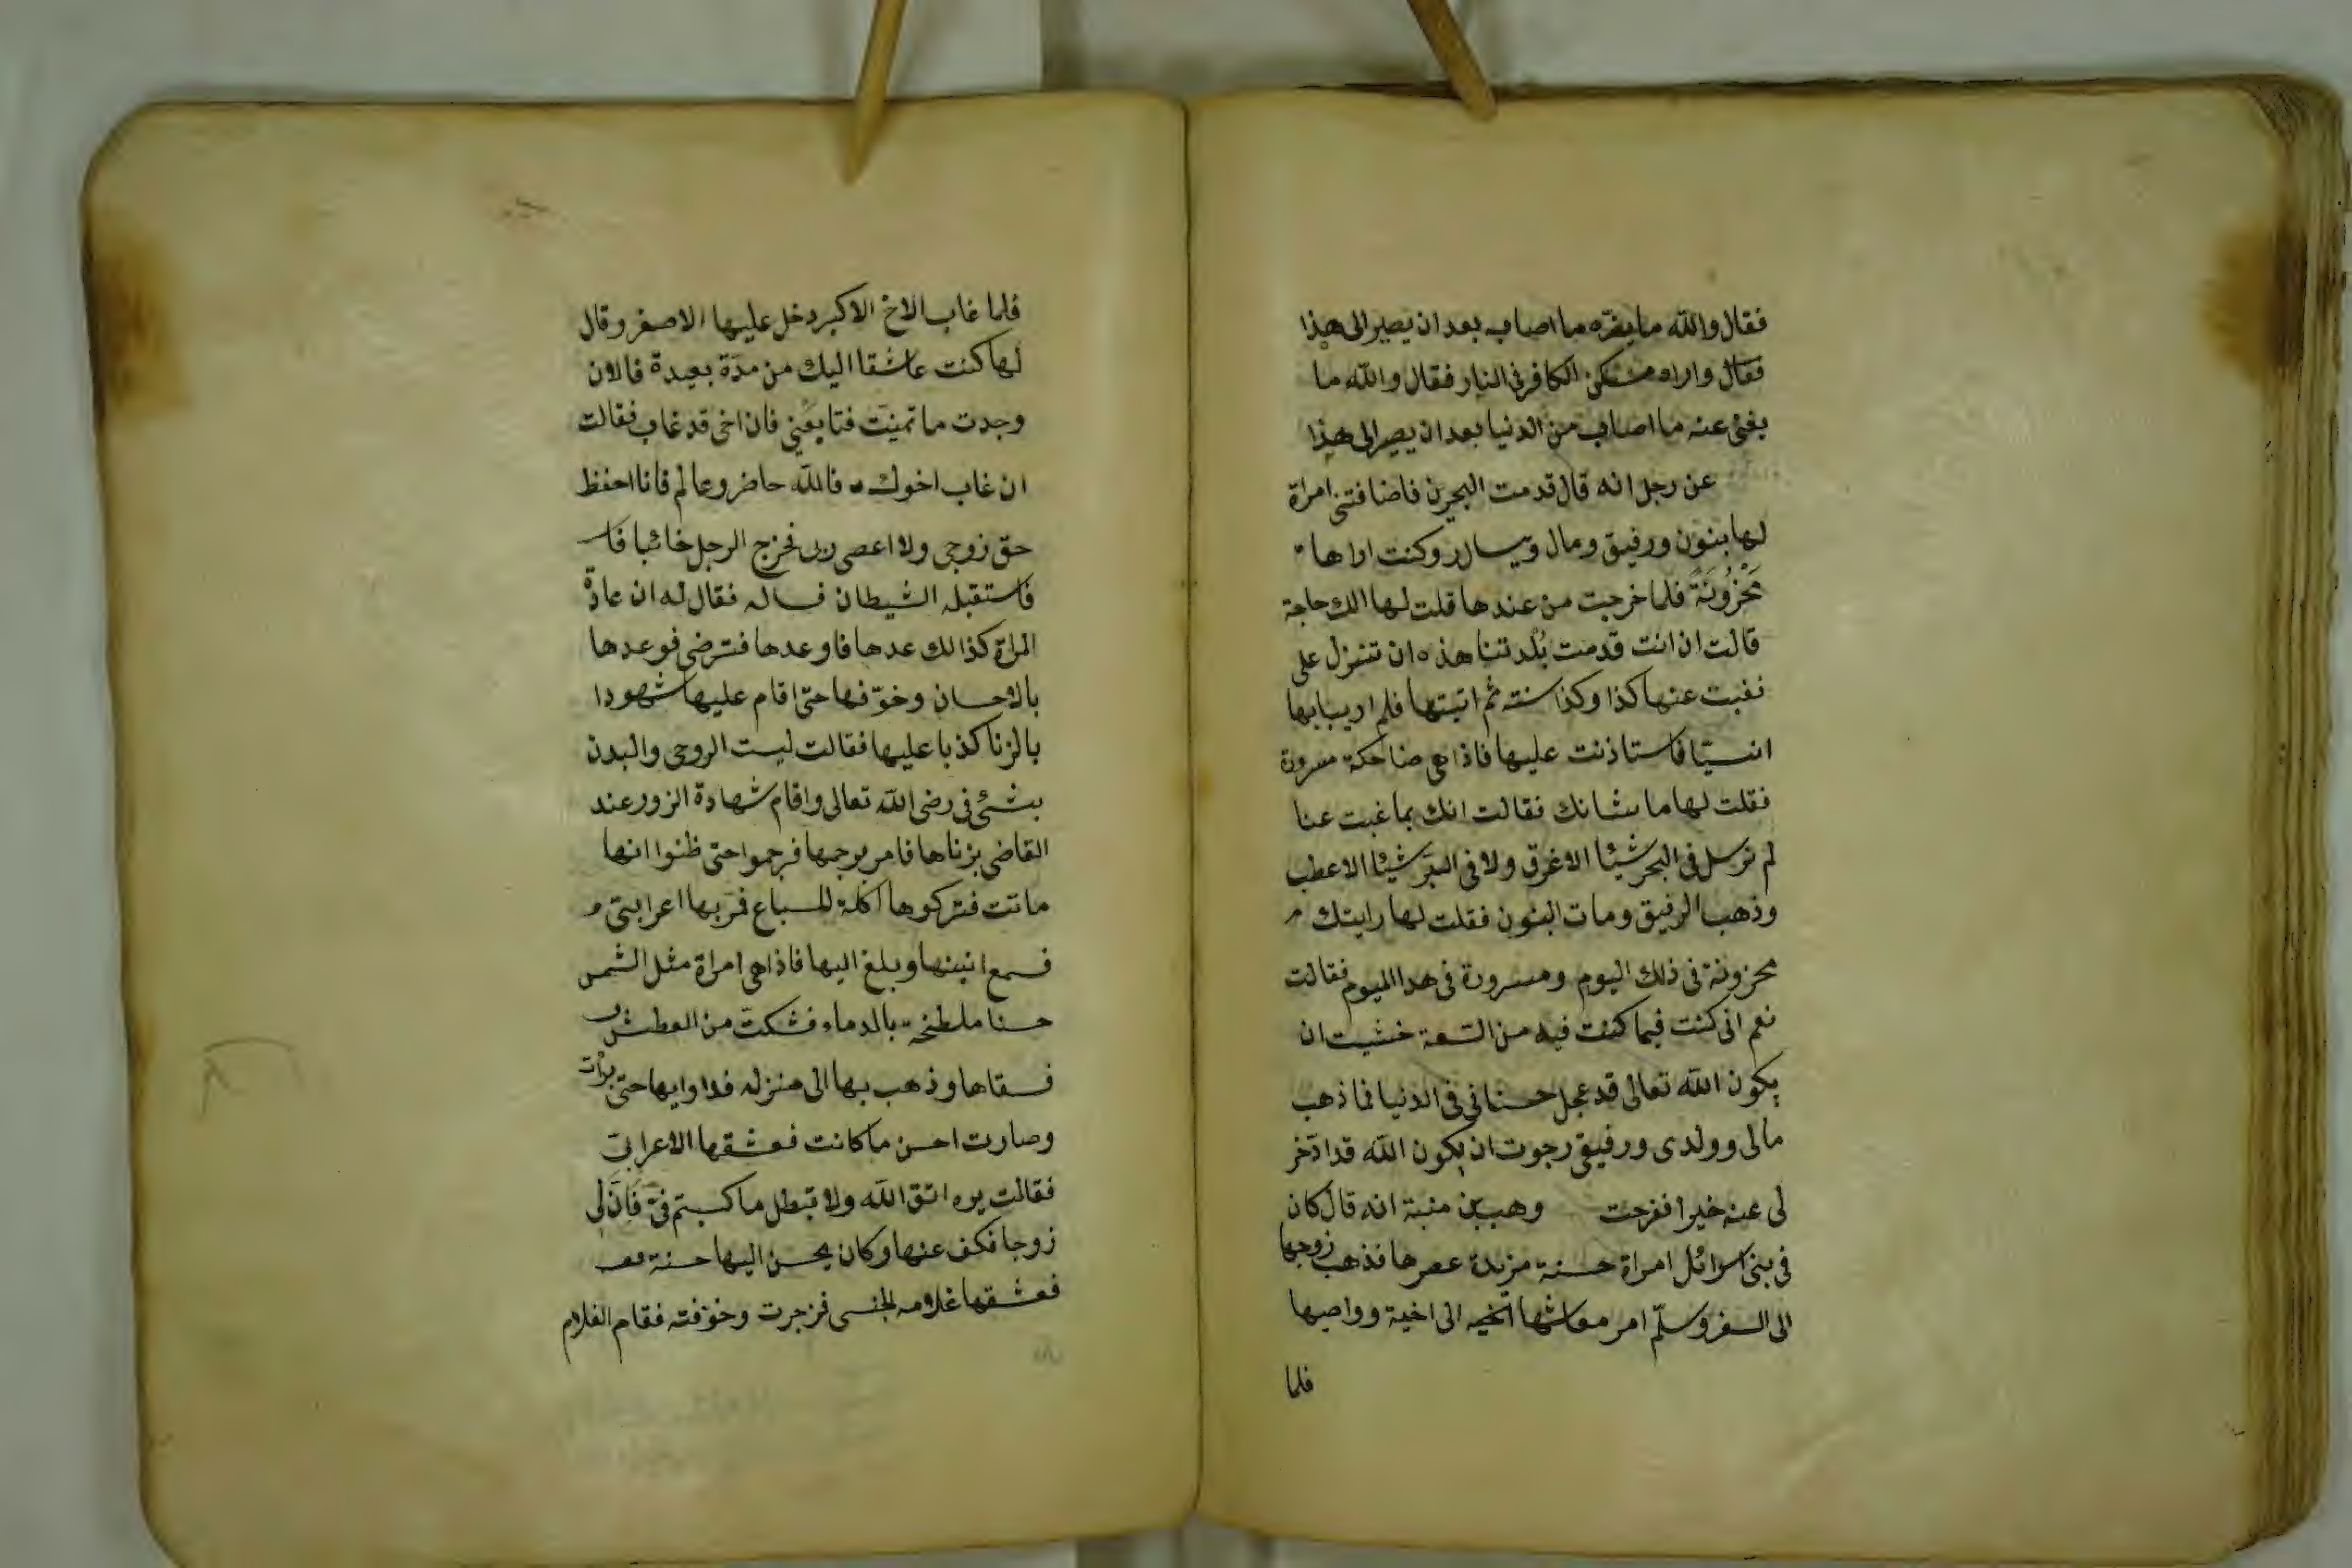 فقال والله ما يضره ما اصاب بعد ان يصير الى هذا
فقال واراه مسكن الكافر فى النار فقال والله ما
يغنى عنه ما اصاب من الدنيا بعد ان يصير الى هذا
عن رجل انه قال قدمت البحرين فاضافتنى امراة
لها بنون ورفيق ومال ويسار وكنت اراها
مَحْزُونَةً فلما خرجت من عندها قلت لها الك حاجة
قالت ان انت قدمت بُلدتنا هذه ان تنزل على
نغبت عنها كذا وكذا سنة ثم اتيتها فلم ار ببابها
انسيّا فاستاذنت عليها فاذا هى ضاحكة مسرورة
فقلت لها ما شانك فقالت انك بما غبت عنا
لم نرسل فى البحر شيئا الا غرق ولا فى البرّ شيئا الا عطب
وذهب الرفيق ومات البنون فقلت لها رايتك
محزونة فى ذلك اليوم ومسرورة فى هذا اليوم فقالت
نعم انى كنت فيما كنت فيه من السّعة خشيت ان
يكون الله تعالى قد عجل حسناتى فى الدنيا فما ذهب
مالى وولدى ورفيقى رجوت ان يكون الله قد ادّخر
لى عنه خيرا ففرحت وهب بن منبة انه قال كان
فى بنى اسرائل امراة حسنة مزيدة عصرها فذهب زوجها
الى السفر وسلّم امر معاشها الى اخية وواصيها
فلما
فلما غاب الاخ الاكبر دخل عليها الاصغر وقال
لها كنت عاشقا اليك من مدّة بعيدة فالان
وجدت ما تمنيت فتابعنى فان اخى قد غاب فقالت
ان غاب اخوك فالله حاضر وعالم فانا احفظ
حق زوجى ولا اعصى ربى فخرج الرجل خائبا
فاستقبله الشيطان فساله فقال له ان عادة
المراة كذالك عدها فاوعدها فترضى فوعدها
بالاحسان وخوّفها حتى اقام عليها شهودا
بالزنا كذبا عليها فقالت ليست الروحى والبدن
بشئ فى رضى الله تعالى واقام شهادة الزور عند
القاضى بزناها فامر برجمها فرجموا حتى ظنوا انها
ماتت فتركوها اكلة للسباع فمرّ بها اعرابىّ
فسمع انينها وبلغ اليها فاذا هى امراة مثل الشمس
حسنا ملطخة بالدماء فشكت من العطش
فسقاها وذهب بها الى منزله فداوايها حتى برأت
وصارت احسن ما كانت فعشقها الاعرابىّ
فقالت اتق الله ولا تبطل ما كسبتم فىّ فَاِنَّ لى
زوجا فكف عنها وكان يحسن اليها حسنة
فعشقها غلامه فزجرت وخوّفته فقام الغلام